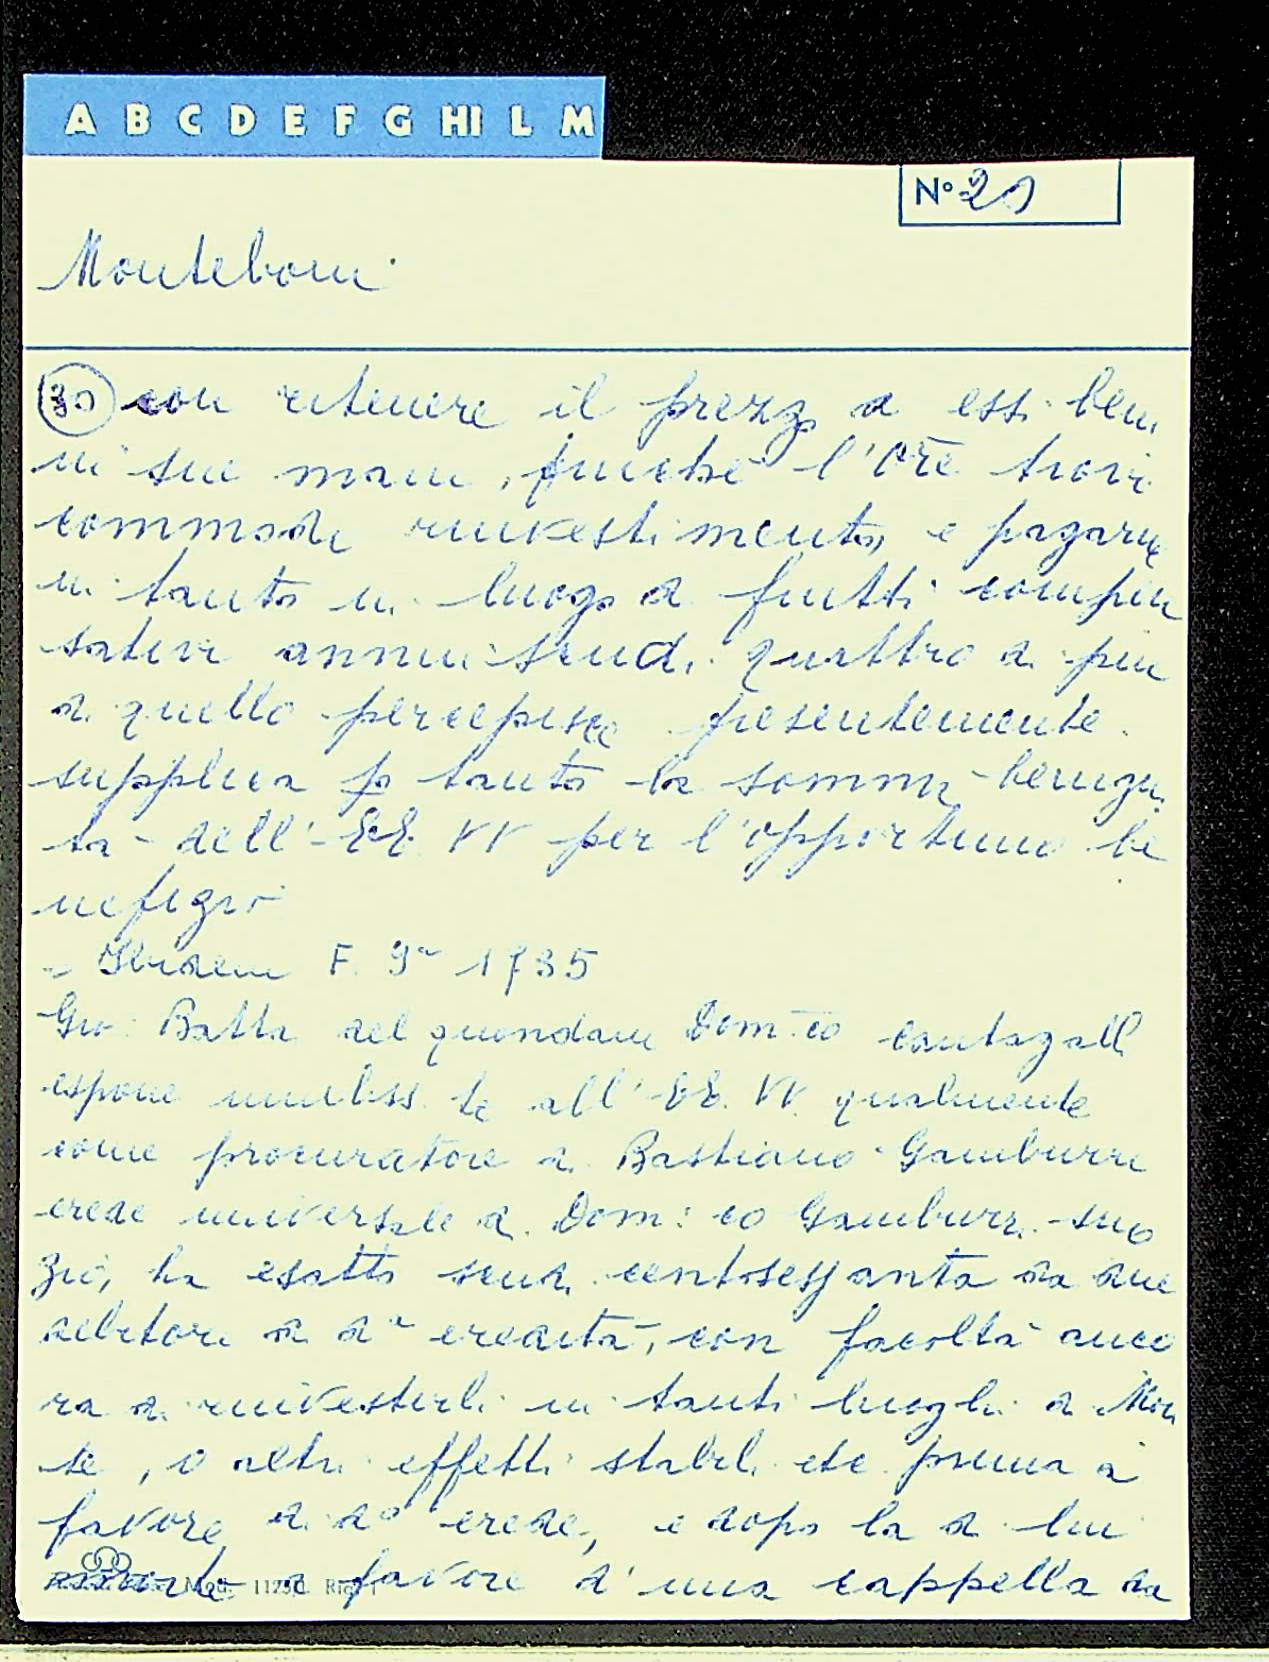 A B C D E F G HI L M
N° 29
Monteboni
30 con ritenere il prezzo di essi beni
in sue mani, finché l'Ore trovi
commodo rinvestimento, e pagarne
in tanto in luogo di frutti compen
sativi annui scudi quattro di più
di quello percepisce presentemente.
supplica p tanto la somma benigni
tà dell'EE. VV per l'opportuno be
nefizio
- Ibidem F. 9° 1735
Gio: Batta del quondam Dom:co Cantagalli
espone umiliss. te all'EE. VV. qualmente
come procuratore di Bastiano Gamburri
erede universale di Dom:co Gamburri suo
zio, ha esatto scudi centosessanta da due
debitori di da eredità, con facoltà anco
ra di rinvestirli in tanti luoghi di Mon
te, o altri effetti stabili etc. prima a
favore di do erede, e dopo la di lui
morte a favore d'una cappella da